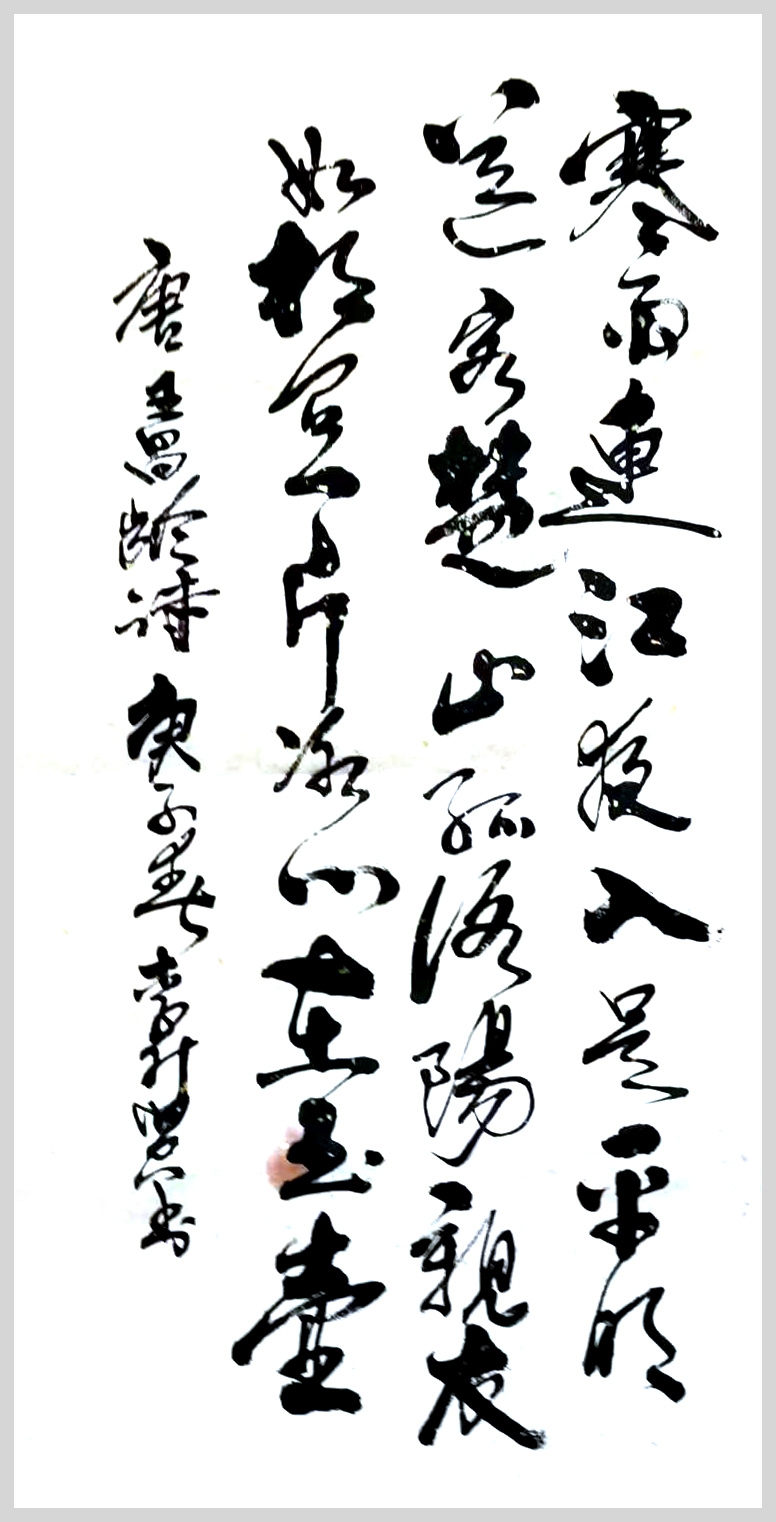 寒雨連江夜入吴平明
送客楚山孤洛陽親友
如相問一片冰心在玉壺
唐王昌齡詩庚子春李书